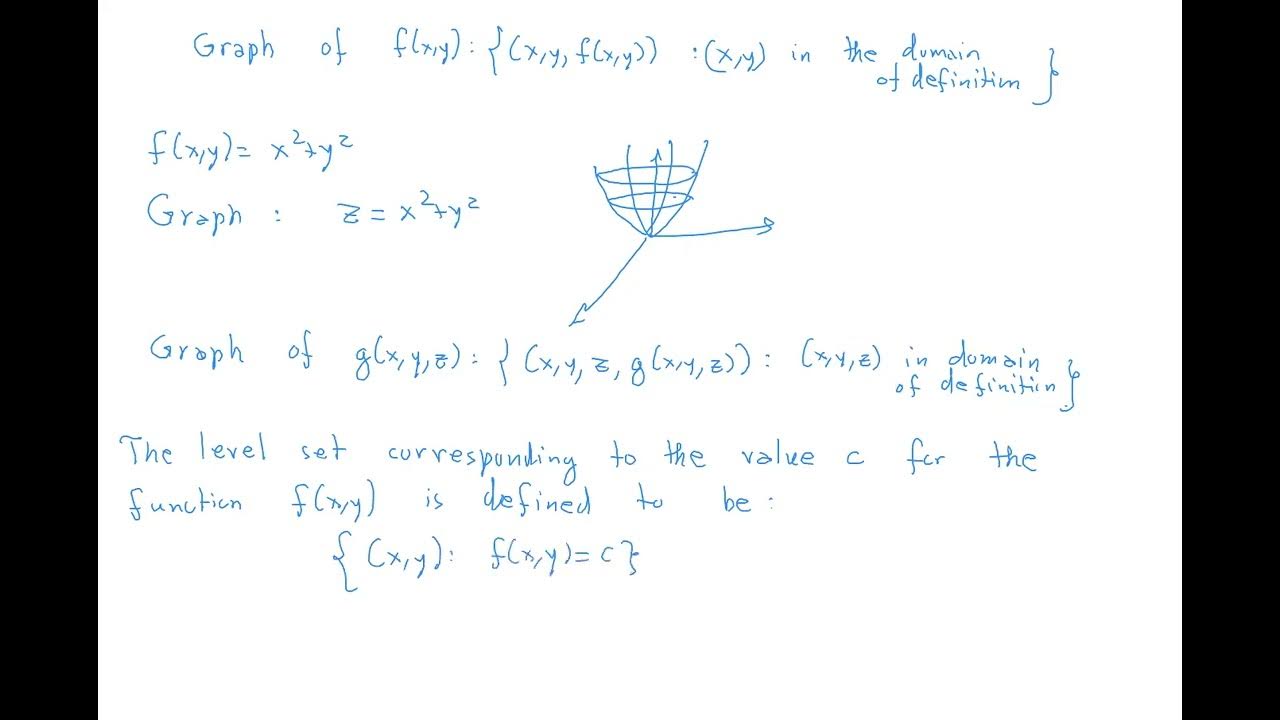 Graph of f(x,y): {(x,y, f(x,y)) : (x,y) in the domain
of definition }
f(x,y)= x²+y²
Graph : z = x²+y²
Graph of g(x,y,z): { (x,y,z, g(x,y,z)) : (x,y,z) in domain
of definition }
The level set corresponding to the value c for the
function f(x,y) is defined to be :
{ (x,y): f(x,y)= c }